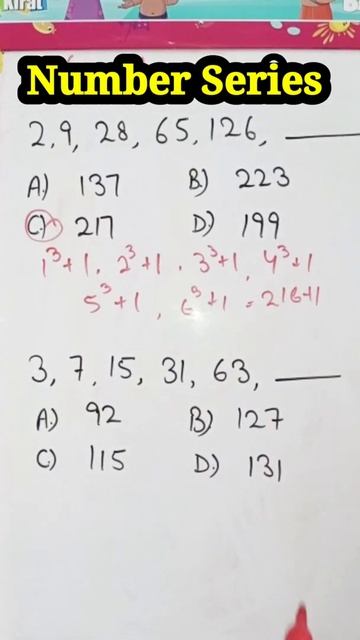 Number Series
2, 9, 28, 65, 126, ____
A) 137 B) 223
C) 217 D) 199
1³+1, 2³+1, 3³+1, 4³+1
5³+1, 6³+1 = 216+1
3, 7, 15, 31, 63, ____
A) 92 B) 127
C) 115 D) 131